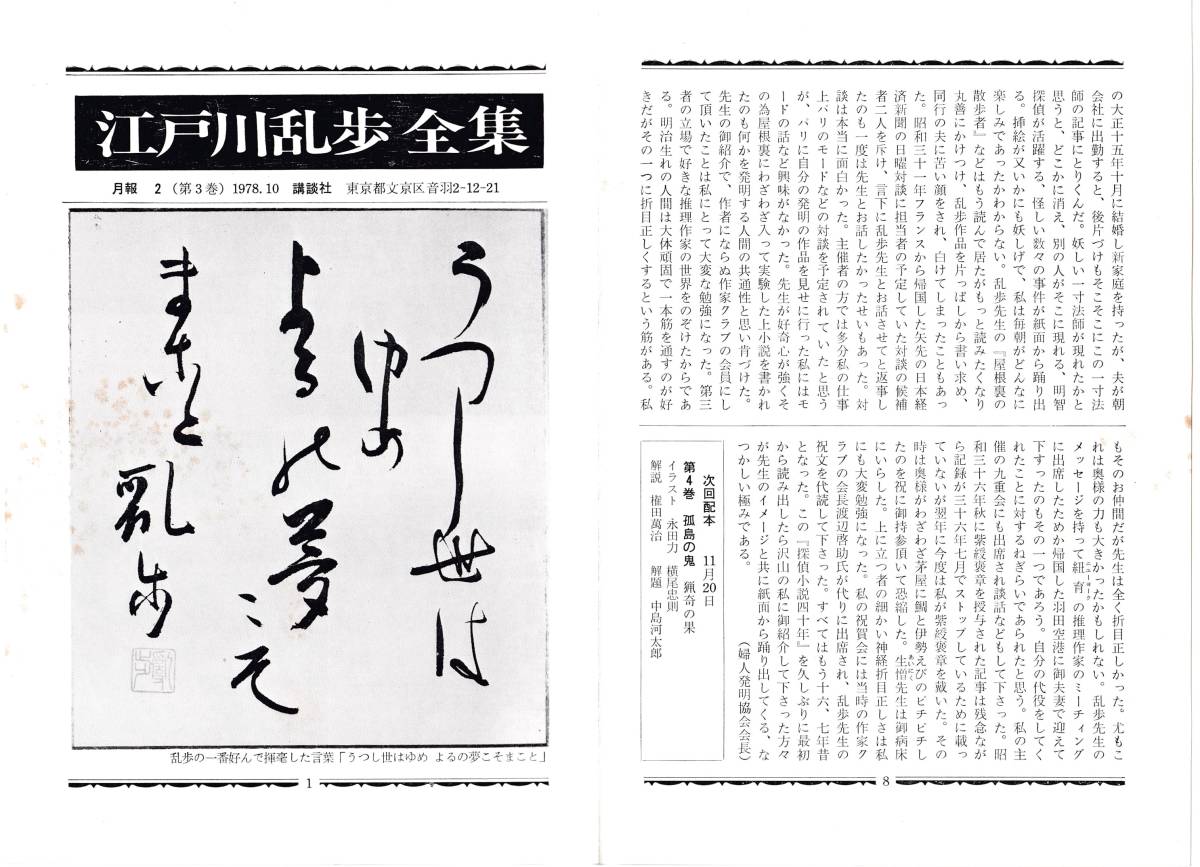 江戸川乱歩 全集
月報 2(第3巻)1978.10 講談社 東京都文京区音羽2-12-21
うつし世は
ゆめ
よるの夢こそ
まこと 乱歩
乱歩の一番好んで揮毫した言葉「うつし世はゆめ よるの夢こそまこと」
1
の大正十五年十月に結婚し新家庭を持ったが、夫が朝
会社に出勤すると、後片づけもそこそこにこの一寸法
師の記事にとりくんだ。妖しい一寸法師が現れたかと
思うと、どこかに消え、別の人がそこに現れる、明智
探偵が活躍する、怪しい数々の事件が紙面から踊り出
る。挿絵が又いかにも妖しげで、私は毎朝がどんなに
楽しみであったかわからない。乱歩先生の『屋根裏の
散歩者』などはもう読んで居たがもっと読みたくなり
丸善にかけつけ、乱歩作品を片っぱしから書い求め、
同行の夫に苦い顔をされ、白けてしまったこともあっ
た。昭和三十一年フランスから帰国した矢先の日本経
済新聞の日曜対談に担当者の予定していた対談の候補
者二人を斥け、言下に乱歩先生とお話させてと返事し
たのも一度は先生とお話したかったせいもあった。対
談は本当に面白かった。主催者の方では多分私の仕事
上パリのモードなどの対談を予定されていたと思う
が、パリに自分の発明の作品を見せに行った私にはモ
ードの話など興味がなかった。先生が好奇心が強くそ
の為屋根裏にわざわざ入って実験した上小説を書かれ
たのも何かを発明する人間の共通性と思い肯づけた。
先生の御紹介で、作者にならぬ作家クラブの会員にし
て頂いたことは私にとって大変な勉強になった。第三
者の立場で好きな推理作家の世界をのぞけたからであ
る。明治生れの人間は大体頑固で一本筋を通すのが好
きだがその一つに折目正しくするという筋がある。私
もそのお仲間だが先生は全く折目正しかった。尤もこ
れは奥様の力も大きかったかもしれない。乱歩先生の
メッセージを持って紐育(ニューヨーク)の推理作家のミーティング
に出席したためか帰国した羽田空港に御夫妻で迎えて
下すったのもその一つであろう。自分の代役をしてく
れたことに対するねぎらいであられたと思う。私の主
催の九重会にも出席され談話などもして下さった。昭
和三十六年秋に紫綬褒章を授与された記事は残念なが
ら記録が三十六年七月でストップしているために載っ
ていないが翌年に今度は私が紫綬褒章を戴いた。その
時は奥様がわざわざ茅屋に鯛と伊勢えびのピチピチし
たのを祝に御持参頂いて恐縮した。生憎(あいにく)先生は御病床
にいらした。上に立つ者の細かい神経折目正しさは私
にも大変勉強になった。私の祝賀会には当時の作家ク
ラブの会長渡辺啓助氏が代りに出席され、乱歩先生の
祝文を代読して下さった。すべてはもう十六、七年昔
となった。この『探偵小説四十年』を久しぶりに最初
から読み出したら沢山の私に御紹介して下さった方々
が先生のイメージと共に紙面から踊り出してくる、な
つかしい極みである。
(婦人発明協会会長)
次回配本 11月20日
第4巻 孤島の鬼 猟奇の果
イラスト 永田力 横尾忠則
解説 権田萬治 解題 中島河太郎
8